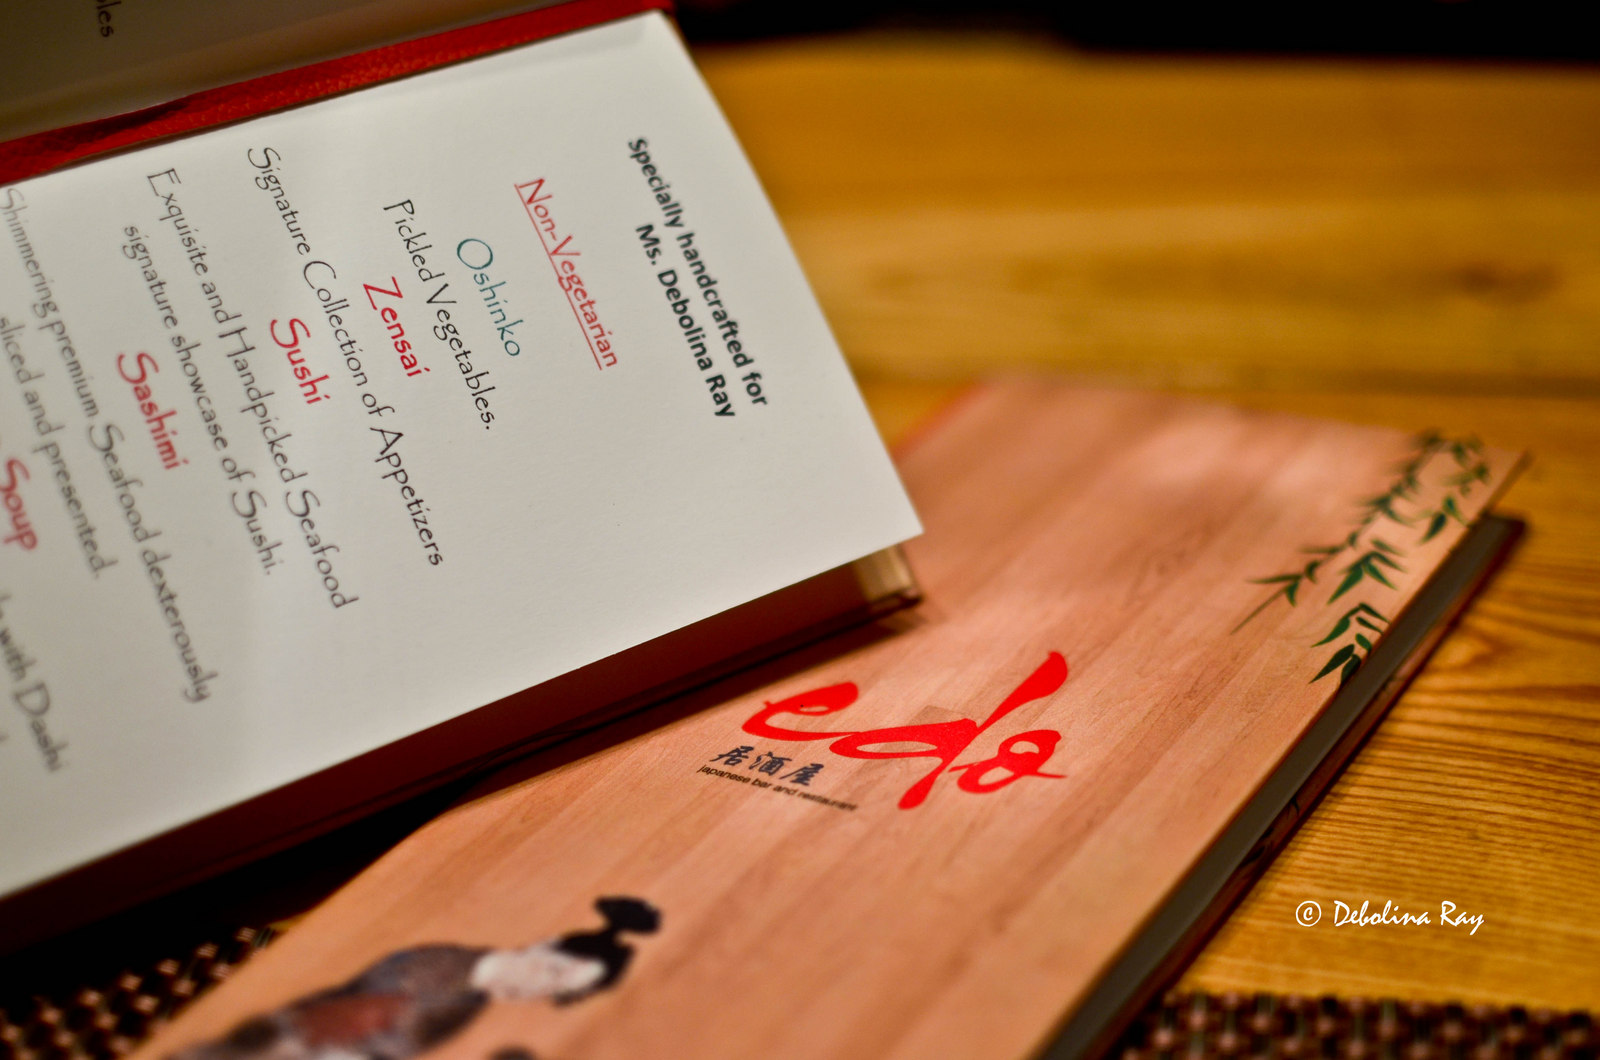 Specially handcrafted for
Ms. Debolina Ray
Non-Vegetarian
Oshinko
Pickled Vegetables.
Zensai
Signature Collection of Appetizers
Sushi
Exquisite and Handpicked Seafood
signature showcase of Sushi.
Sashimi
Shimmering premium Seafood dexterously
sliced and presented.
Soup
with Dashi
edo
居酒屋
japanese bar and restaurant
© Debolina Ray